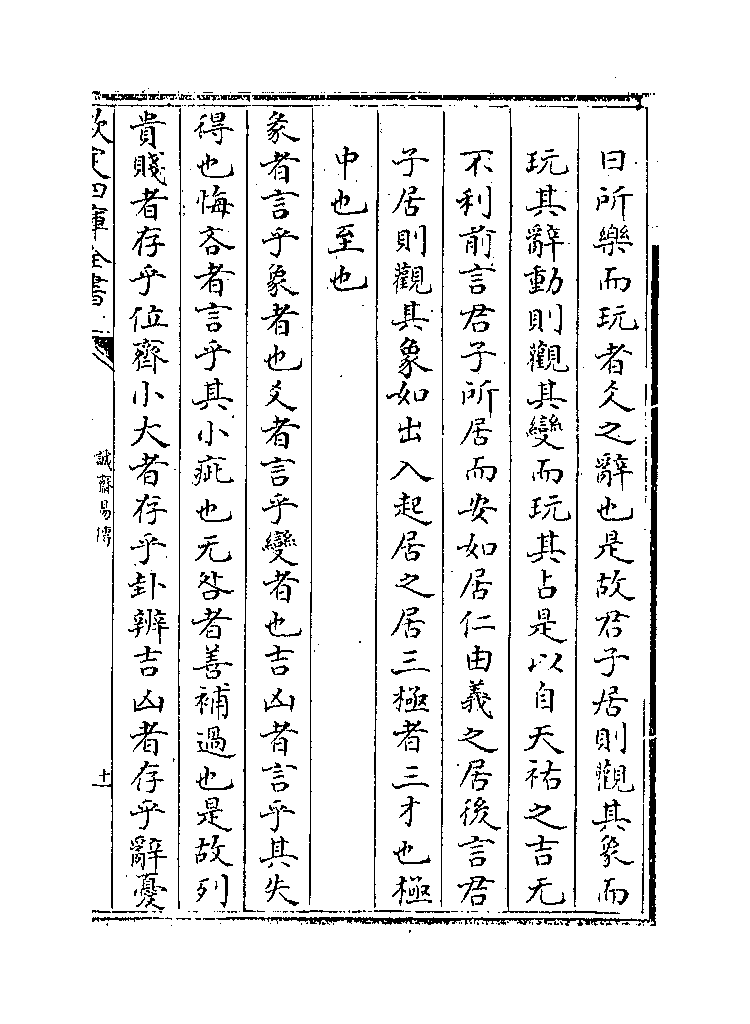 曰所樂而玩者爻之辭也是故君子居則觀其象而
玩其辭動則觀其變而玩其占是以自天祐之吉无
不利前言君子所居而安如居仁由義之居後言君
子居則觀其象如出入起居之居三極者三才也極
中也至也
彖者言乎象者也爻者言乎變者也吉凶者言乎其失
得也悔吝者言乎其小疵也无咎者善補過也是故列
貴賤者存乎位齊小大者存乎卦辨吉凶者存乎辭憂
欽定四庫全書
誠齋易傳
十一